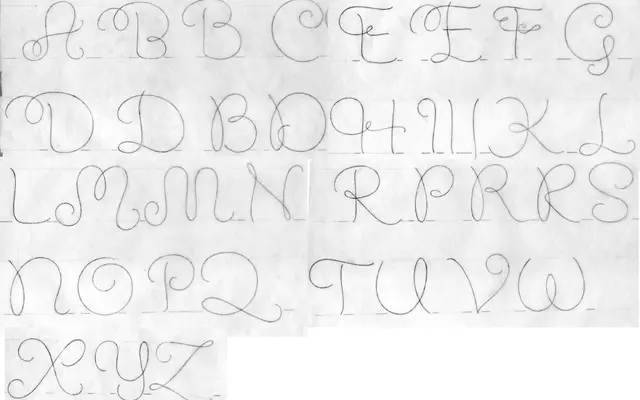 A B B C E E F G
D D B D H I K L
L M M N R P R R S
N O P Q T U V W
X Y Z